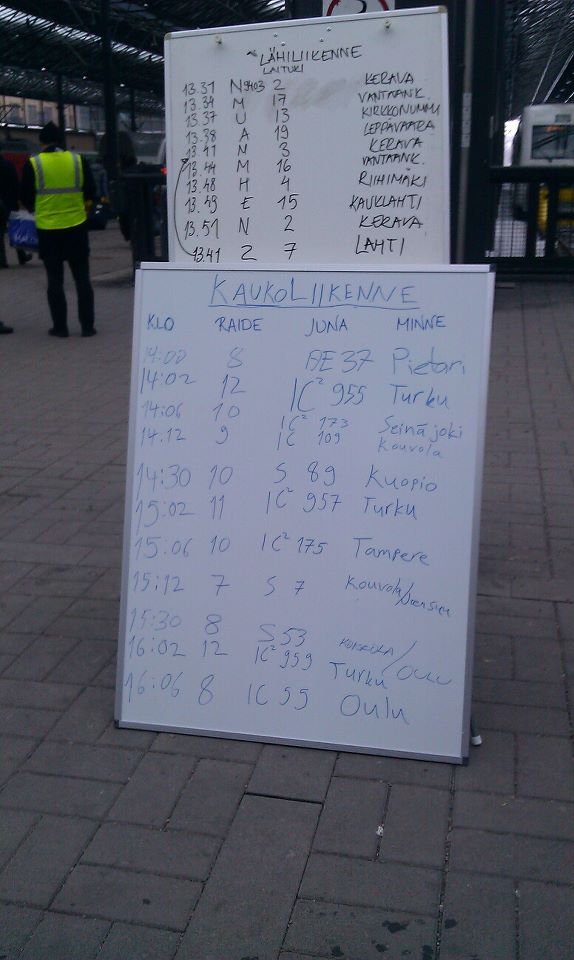 LÄHILIIKENNE
LAITURI
13.31 N9403 2 KERAVA
13.34 M 17 VANTAANK.
13.37 U 13 KIRKKONUMMI
13.38 A 19 LEPPÄVAARA
13.41 N 3 KERAVA
13.44 M 16 VANTAANK.
13.48 H 4 RIIHIMÄKI
13.49 E 15 KAUKLAHTI
13.51 N 2 KERAVA
13.41 Z 7 LAHTI
KAUKOLIIKENNE
KLO RAIDE JUNA MINNE
14:00 8 AE 37 Pietari
14:02 12 IC² 955 Turku
14:06 10 IC² 173 Seinäjoki
14.12 9 IC 109 Kouvola
14:30 10 S 89 Kuopio
15:02 11 IC² 957 Turku
15:06 10 IC² 175 Tampere
15:12 7 S 7 Kouvola/Joensuu
15:30 8 S 53 /OULU
16:02 12 IC² 959 Turku
16:06 8 IC 55 Oulu